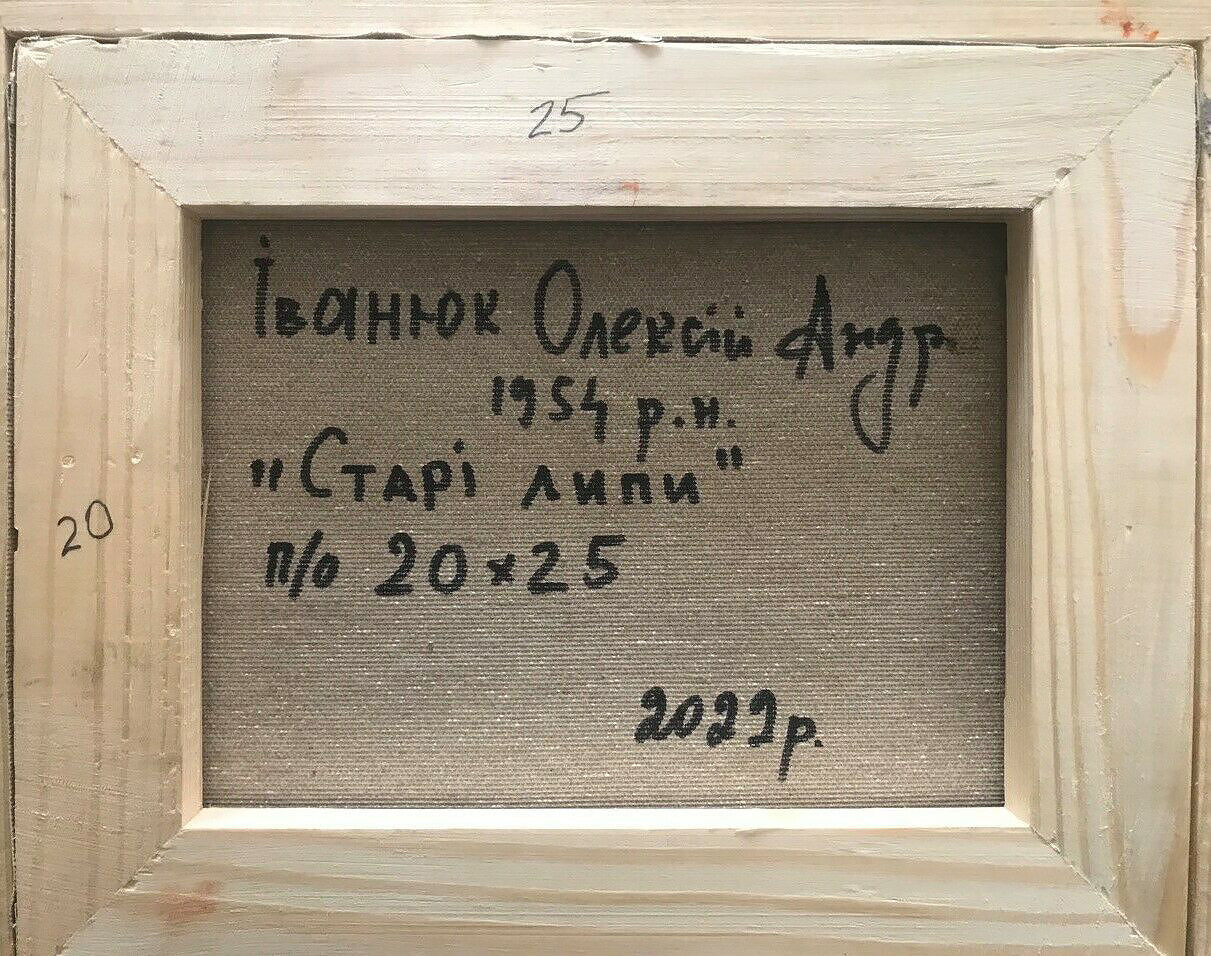 25
Іванюк Олексій Андр.
1954 р.н.
"Старі липи"
20
п/о 20×25
2022р.